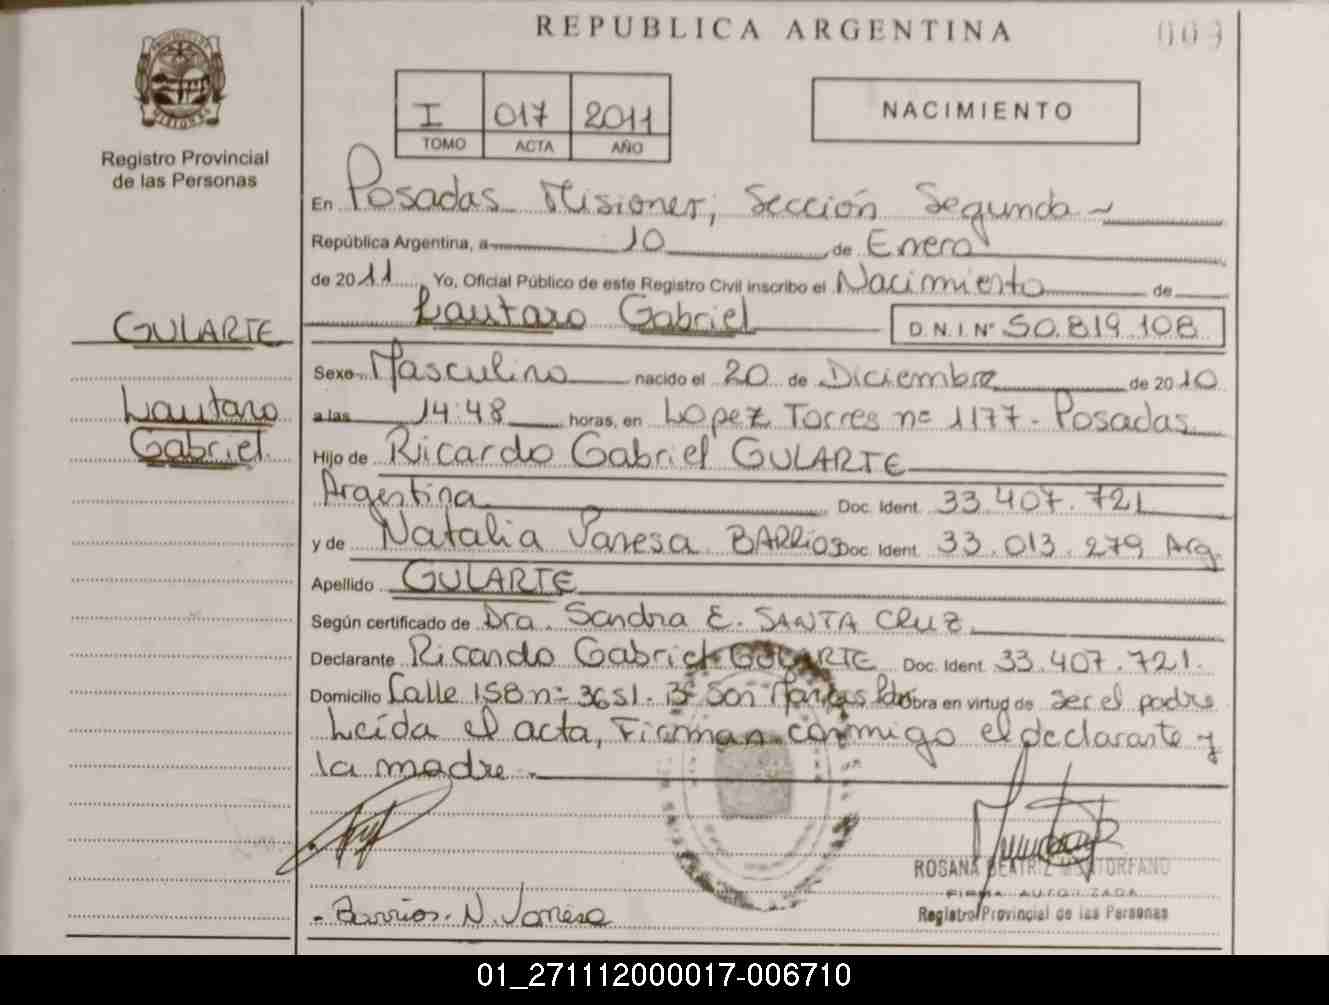 REPUBLICA ARGENTINA
003
Registro Provincial
de las Personas
I 017 2011
TOMO ACTA AÑO
NACIMIENTO
En Posadas Misiones, Sección Segunda
República Argentina, a 10 de Enero
de 2011 Yo, Oficial Público de este Registro Civil inscribo el Nacimiento de
Lautaro Gabriel D.N.I. Nº 50.819.108
GULARTE
Lautaro
Gabriel
Sexo Masculino nacido el 20 de Diciembre de 2010
a las 14:48 horas, en Lopez Torres nº 1177 - Posadas
Hijo de Ricardo Gabriel GULARTE
Argentina Doc. Ident. 33.407.721
y de Natalia Vanesa BARRIOS Doc. Ident. 33.013.279 Arg.
Apellido GULARTE
Según certificado de Dra. Sandra E. SANTA CRUZ
Declarante Ricardo Gabriel GULARTE Doc. Ident. 33.407.721.
Domicilio Calle 158 nº 3651 - Bº San Marcos Pdas Obra en virtud de ser el padre
Leída el acta, Firman conmigo el declarante y
la madre.
ROSANA BEATRIZ MONTORFANO
FIRMA AUTORIZADA
Registro Provincial de las Personas
Barrios N. Vanesa
01_271112000017-006710